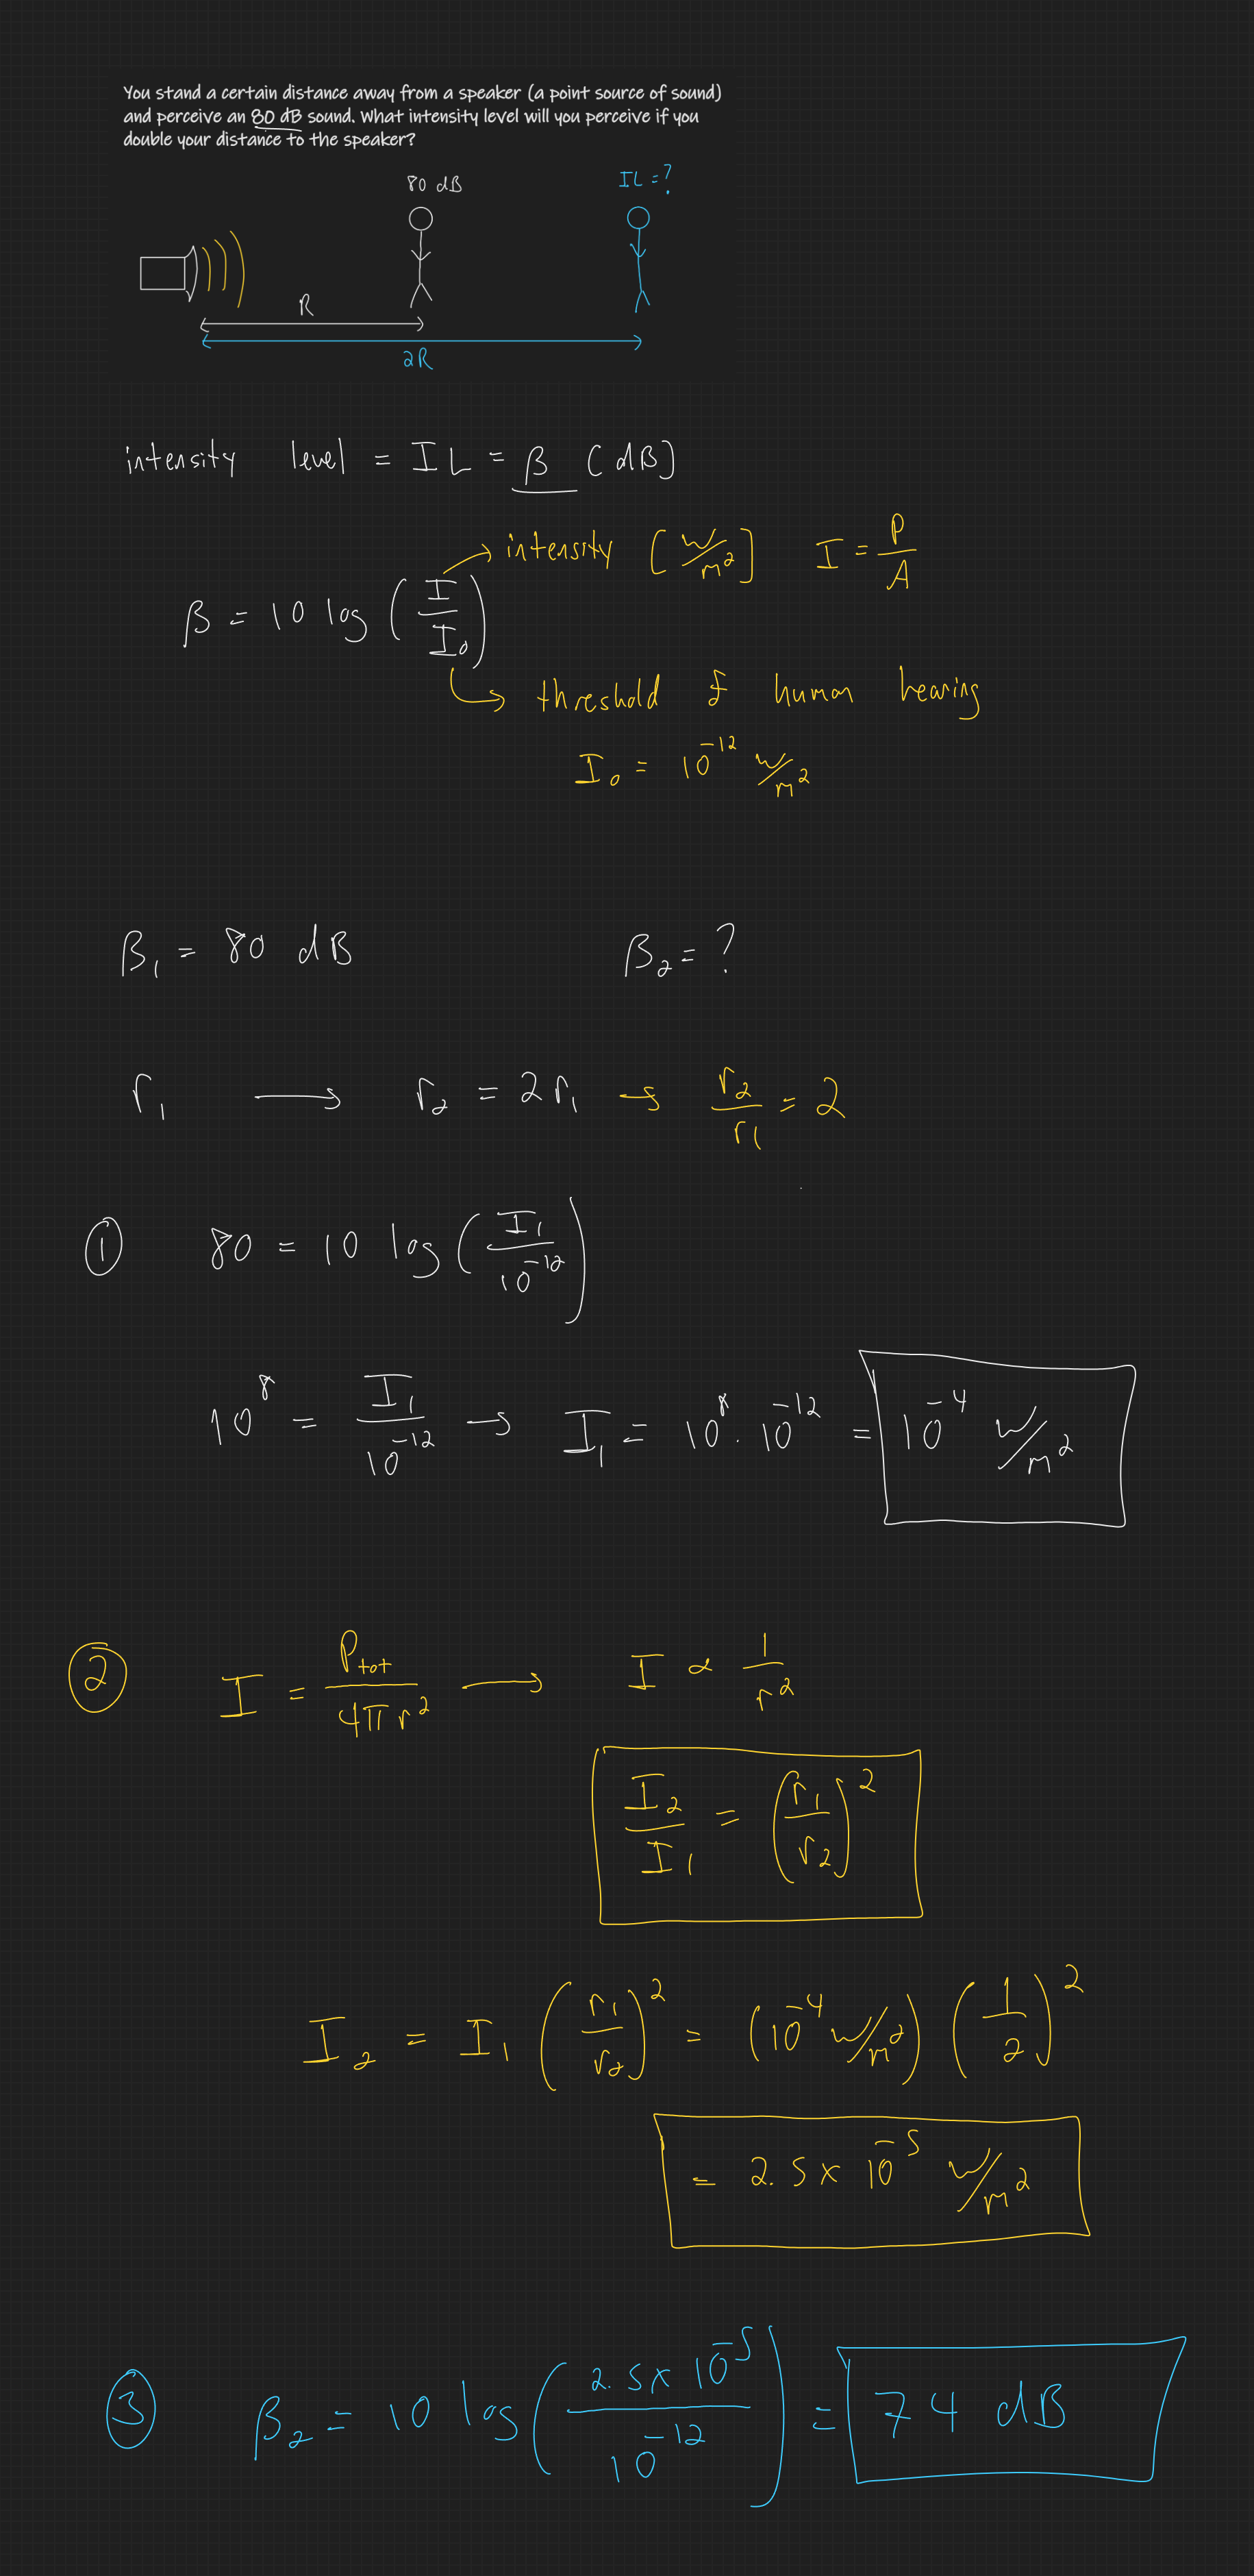 You stand a certain distance away from a speaker (a point source of sound)
and perceive an 80 dB sound. What intensity level will you perceive if you
double your distance to the speaker?
80 dB
IL = ?
R
2R
intensity level = IL = β (dB)
→ intensity [W/m²] I = P/A
β = 10 log (I/I₀)
→ threshold of human hearing
I₀ = 10⁻¹² W/m²
β₁ = 80 dB β₂ = ?
r₁ → r₂ = 2r₁ → r₂/r₁ = 2
① 80 = 10 log (I₁/10⁻¹²)
10⁸ = I₁/10⁻¹² → I₁ = 10⁸ · 10⁻¹² = 10⁻⁴ W/m²
② I = P_tot/4πr² → I ∝ 1/r²
I₂/I₁ = (r₁/r₂)²
I₂ = I₁ (r₁/r₂)² = (10⁻⁴ W/m²) (1/2)²
= 2.5 x 10⁻⁵ W/m²
③ β₂ = 10 log (2.5 x 10⁻⁵/10⁻¹²) = 74 dB